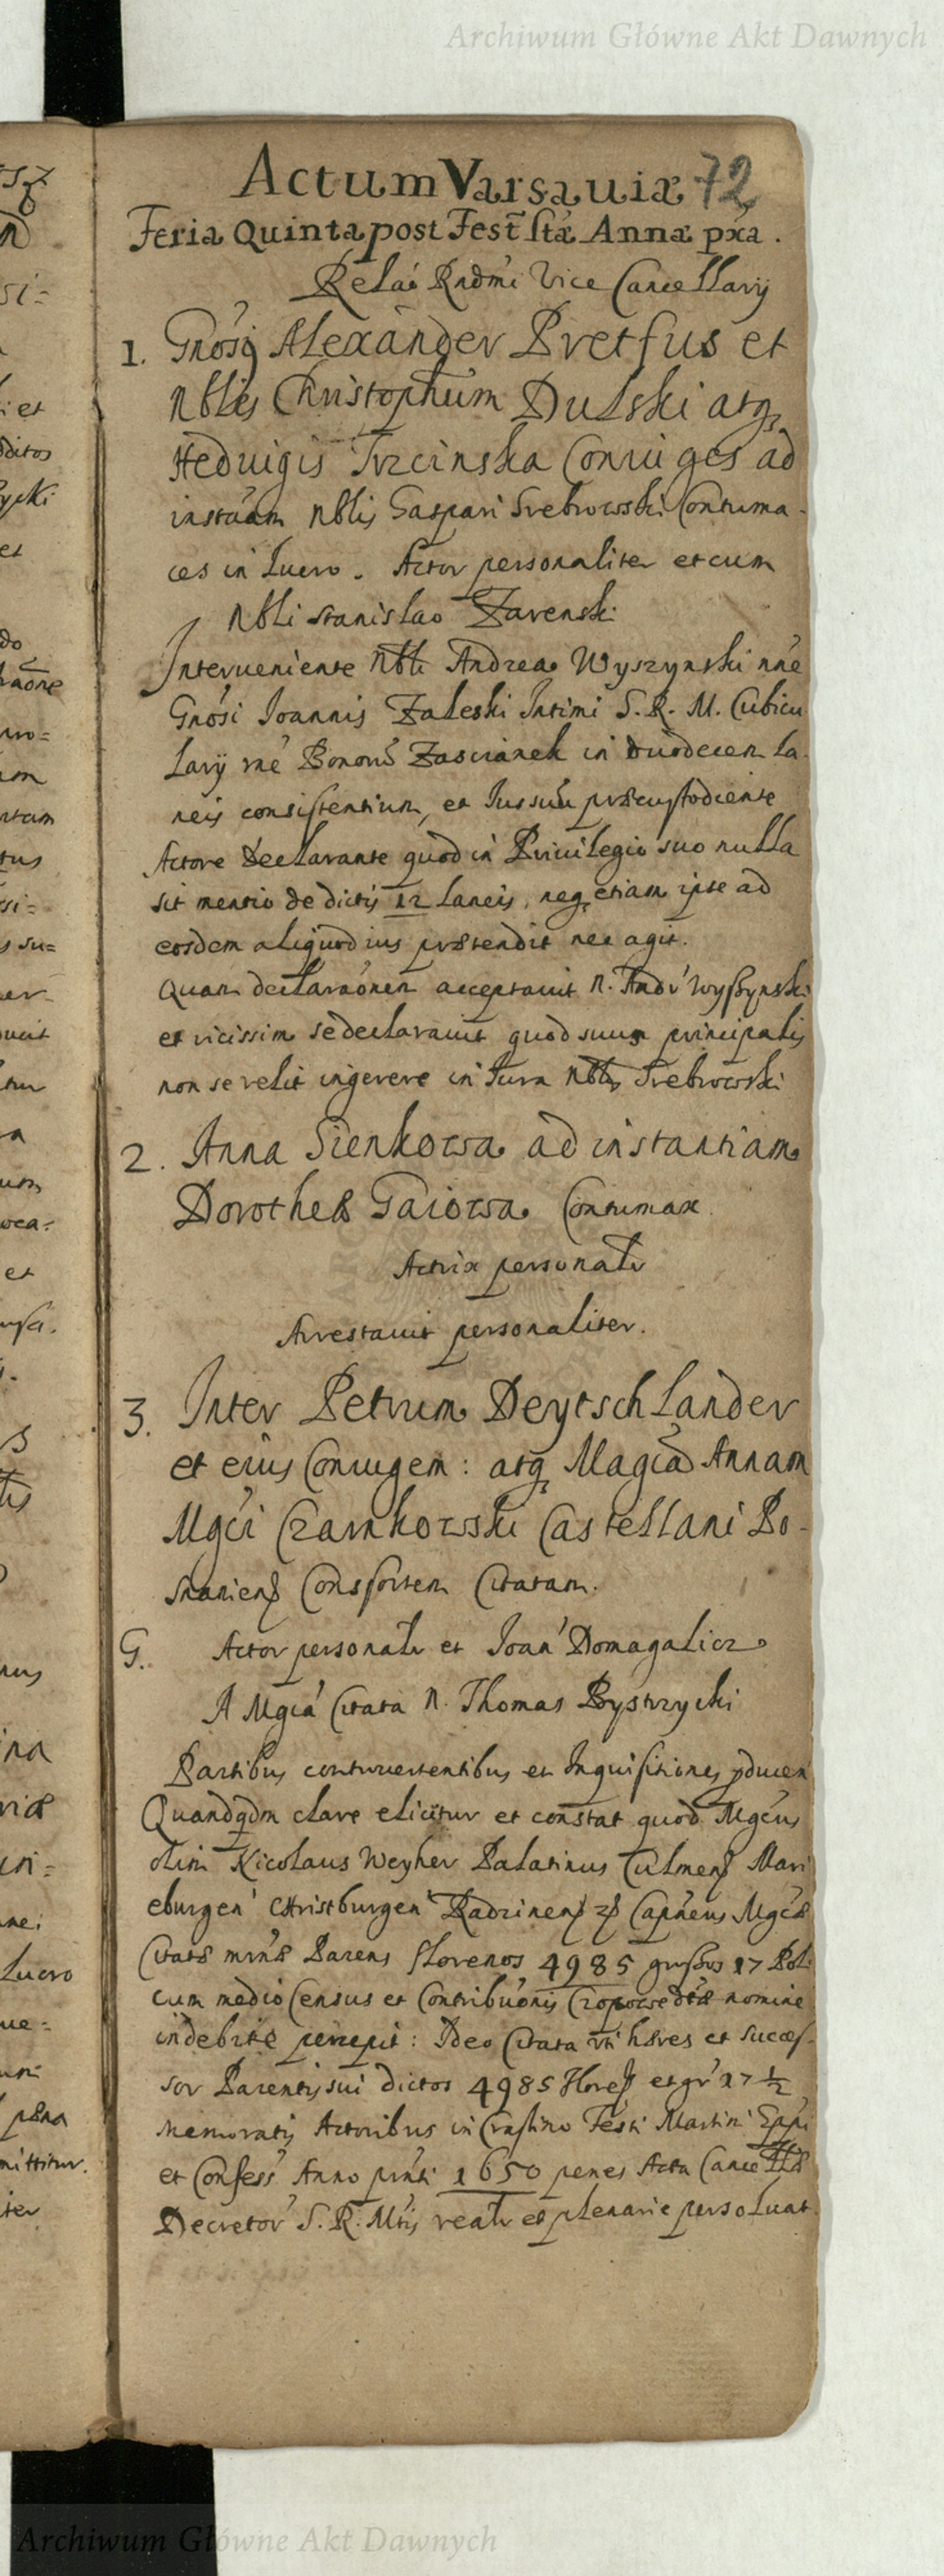 Archiwum Główne Akt Dawnych
Actum Varsauiæ 72
Feria Quinta post Fest̃ Stæ Annæ pxa.
Relaō Rndmi Vice Cancellarij
1. Gnosq Alexander Pretfus et
Nblis Christophum Dulski atq
Heduigis Trzcinska Coniuges ad
instāam Nblis Gaspari Srebrowski Contuma-
ces in Lucro. Actor personaliter et cum
Nbli Stanislao Zarenski
Interueniente Nbli Andrea Wyszynski nñe
Gnosi Ioannis Zaleski Intimi S. R. M. Cubicu
larij rñe Bonorũ Zascianek in duodecem la
neis consistentium, et Iussum præcustodiente
Actore Declarante quod in Priuilegio suo nulla
sit mentio de dictis 12 laneis, neq etiam ipse ad
eosdem aliquod ius prætendit nec agit.
Quam declaraōnem acceptauit N. Andr Wyszynski
et vicissim se declarauit quod suus principalis
non se velit ingerere in Iura Nblis Srebrowski
2. Anna Sienkowa ad instantiam
Dorotheæ Gaiowa Contumax.
Actrix personalr
Arrestauit personaliter.
3. Inter Petrum Deytschlander
et eius Coniugem: atq Magcā Annam
Mgci Czarnkowski Castellani Po-
snaniens Consortem Citatam.
G. Actor personalr et Ioan Domagalicz
A Mgca Citata N. Thomas Bystrzycki
Partibus controuertentibus et Inquisitiones pducen
Quandqdm clare elicitur et constat quod Mgcus
olim Nicolaus Weyher Palatinus Culmens Mari
eburgen Christburgen Radzinens Capneus Mgcæ
Citatæ Parens florenos 4985 grossos 17 Pol.
cum medio Census et Contribuōnis Czopowe dtæ nomine
indebite percepit: Ideo Citata uti hæres et Succes-
sor Parentis sui dictos 4985 flores et gr 17 ½
memoratis Actoribus in Crastino Festi Martini Eppi
et Confess Anno prñti 1650 penes Acta Cancellæ
Decretor S. R. Mtis realr et plenarie persoluat
Archiwum Główne Akt Dawnych